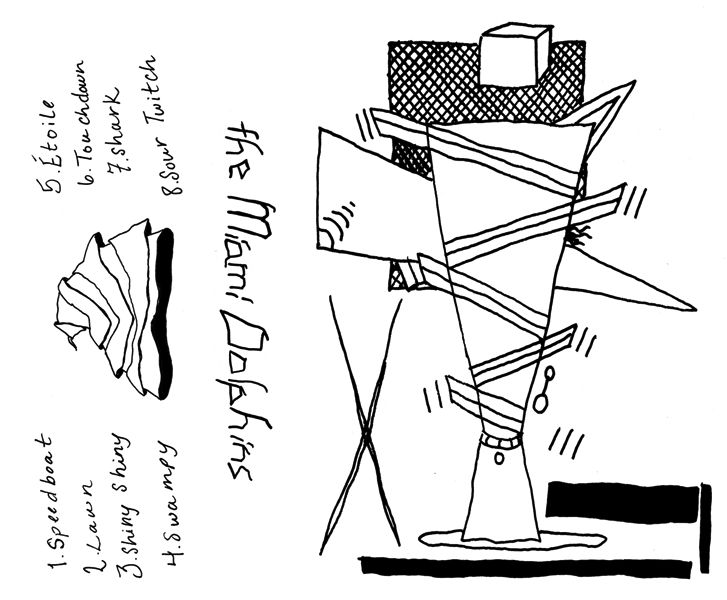 the Miami Dolphins
1. Speedboat
2. Lawn
3. Shiny Shiny
4. Swampy
5. Étoile
6. Touchdown
7. Shark
8. Sour Twitch